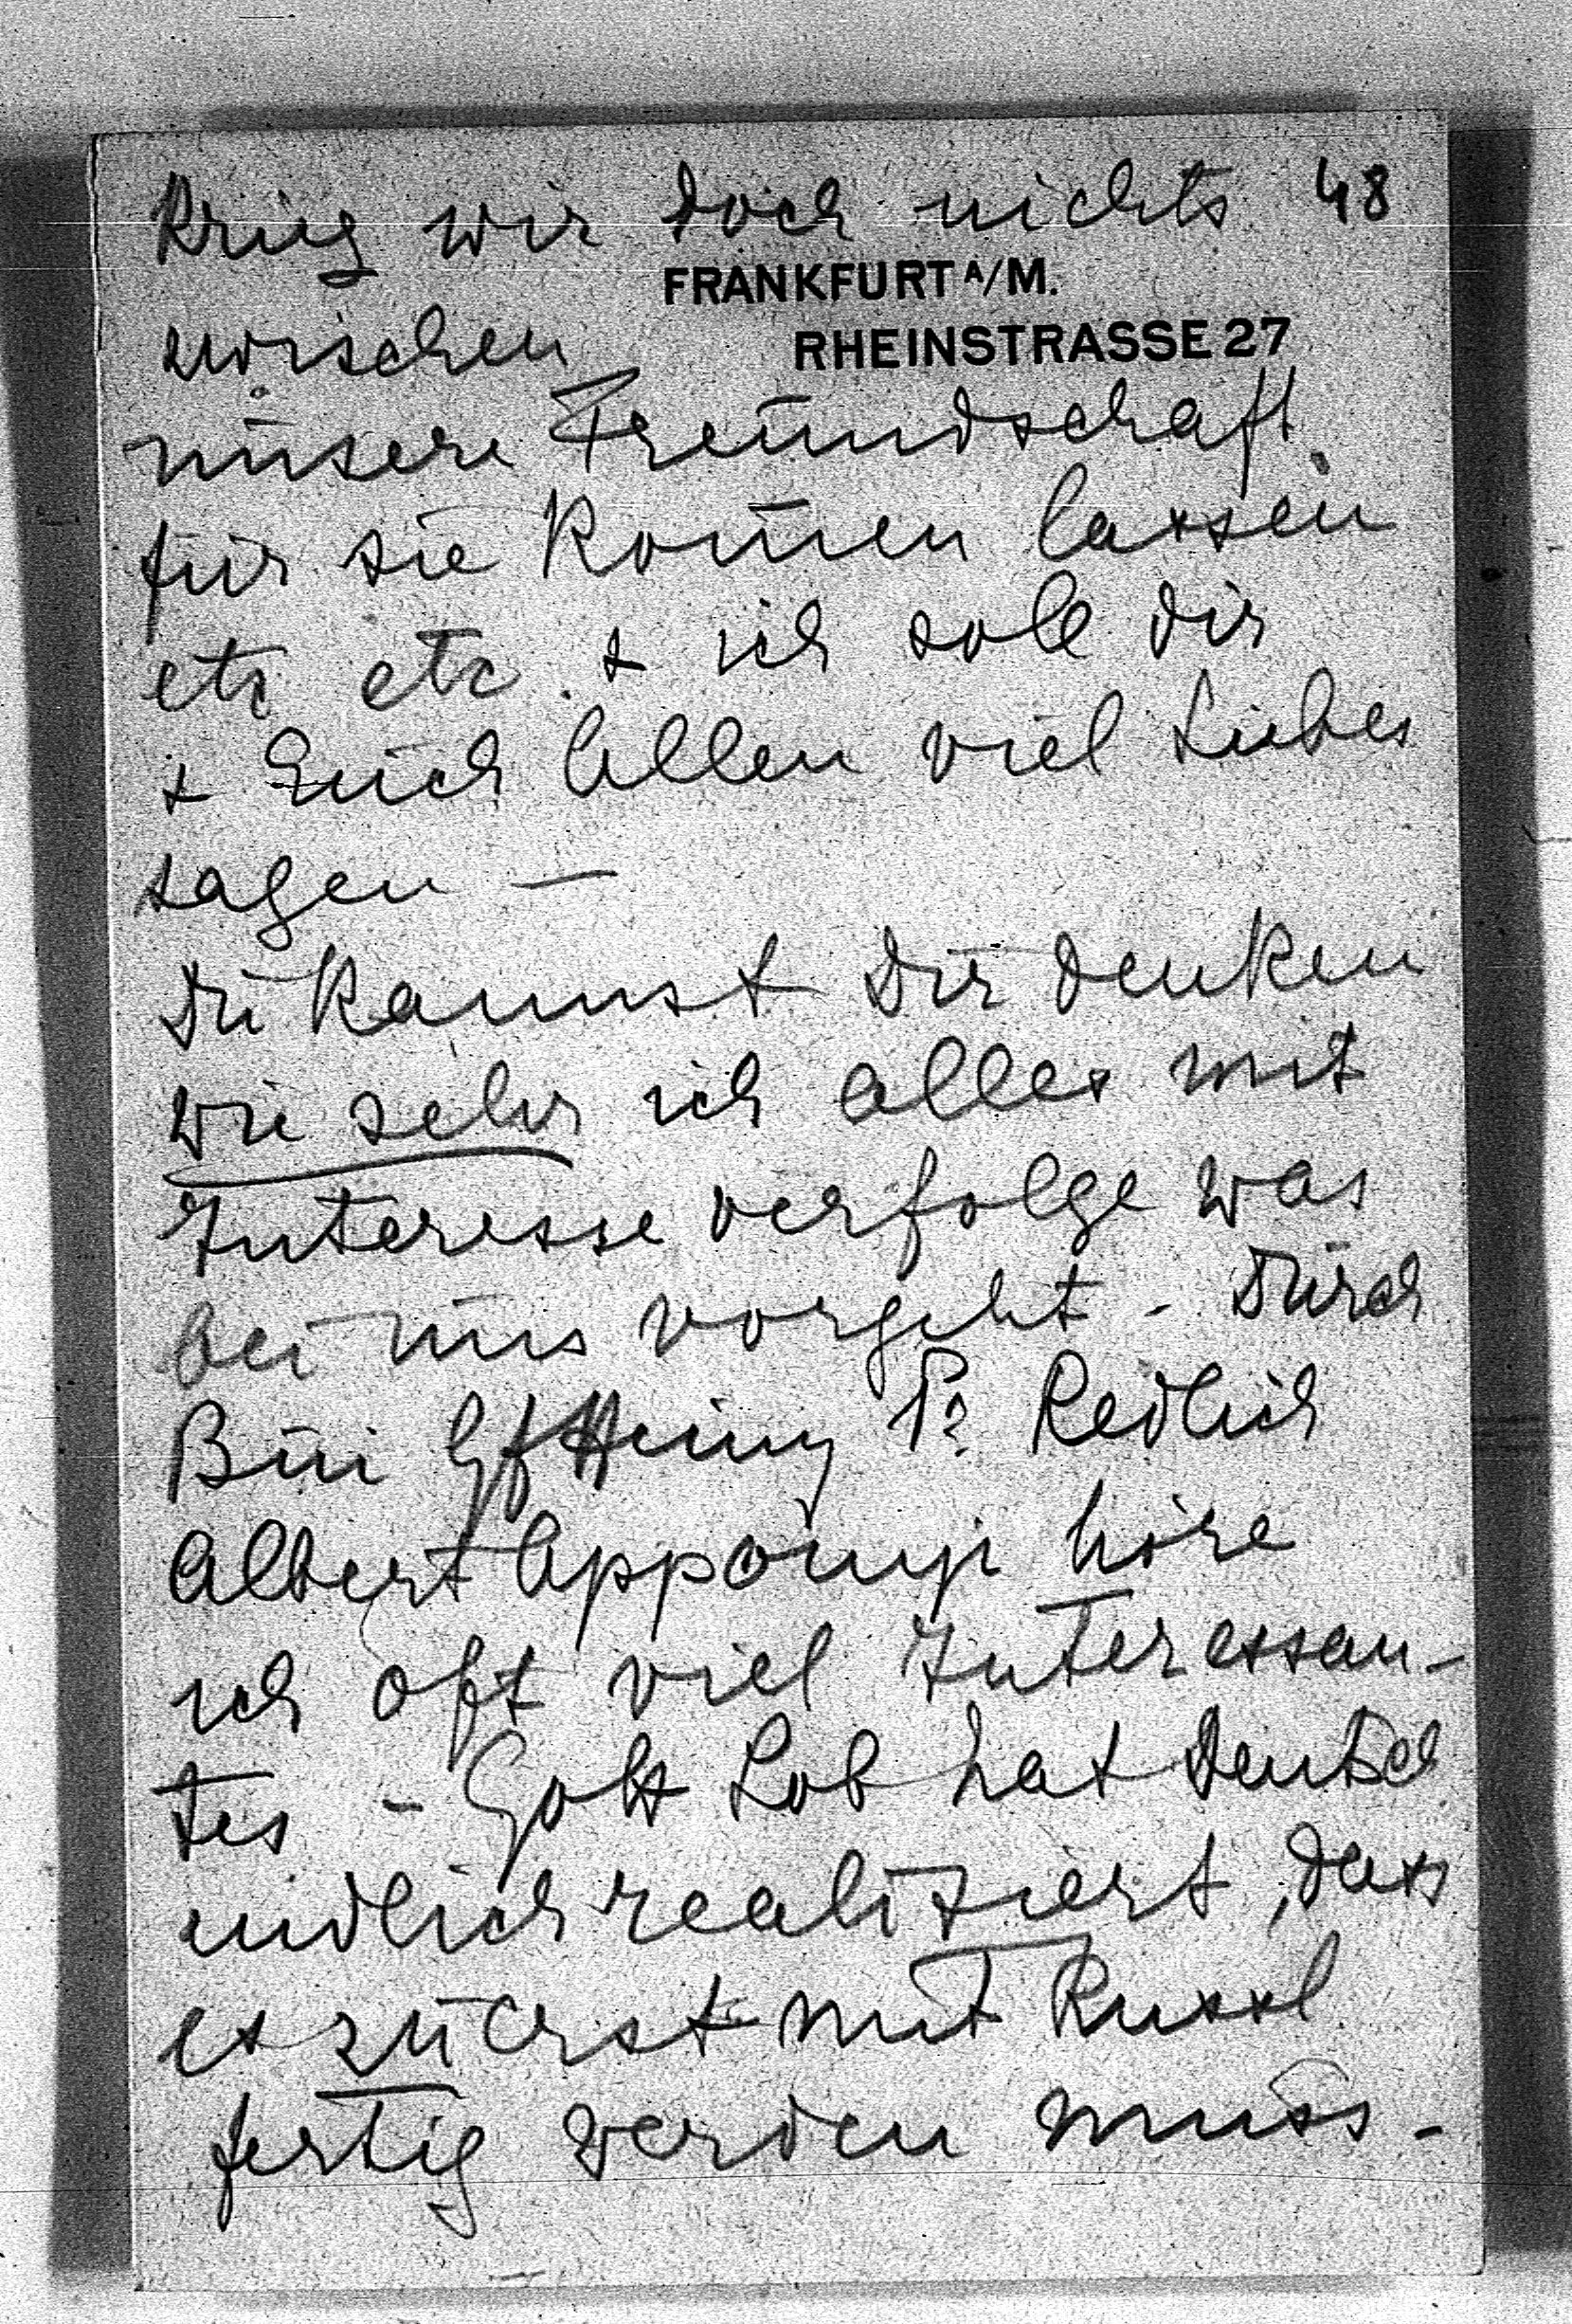 Krieg wir doch nichts 48
FRANKFURT A/M.
zwischen RHEINSTRASSE 27
unsere Freundschaft
für sie komen lassen
etc etc. & ich soll dir
& Euch Allen viel Liebes
sagen —
Du kannst Dir denken
wie sehr ich alles mit
Interesse verfolge was
bei uns vorgeht - Durch
Redlich
Albert Apponyi höre
ich oft viel Interessan-
tes - Gott Lob hat Deutschl
endlich realisiert, dass
es zuerst mit Russl
fertig werden muss -